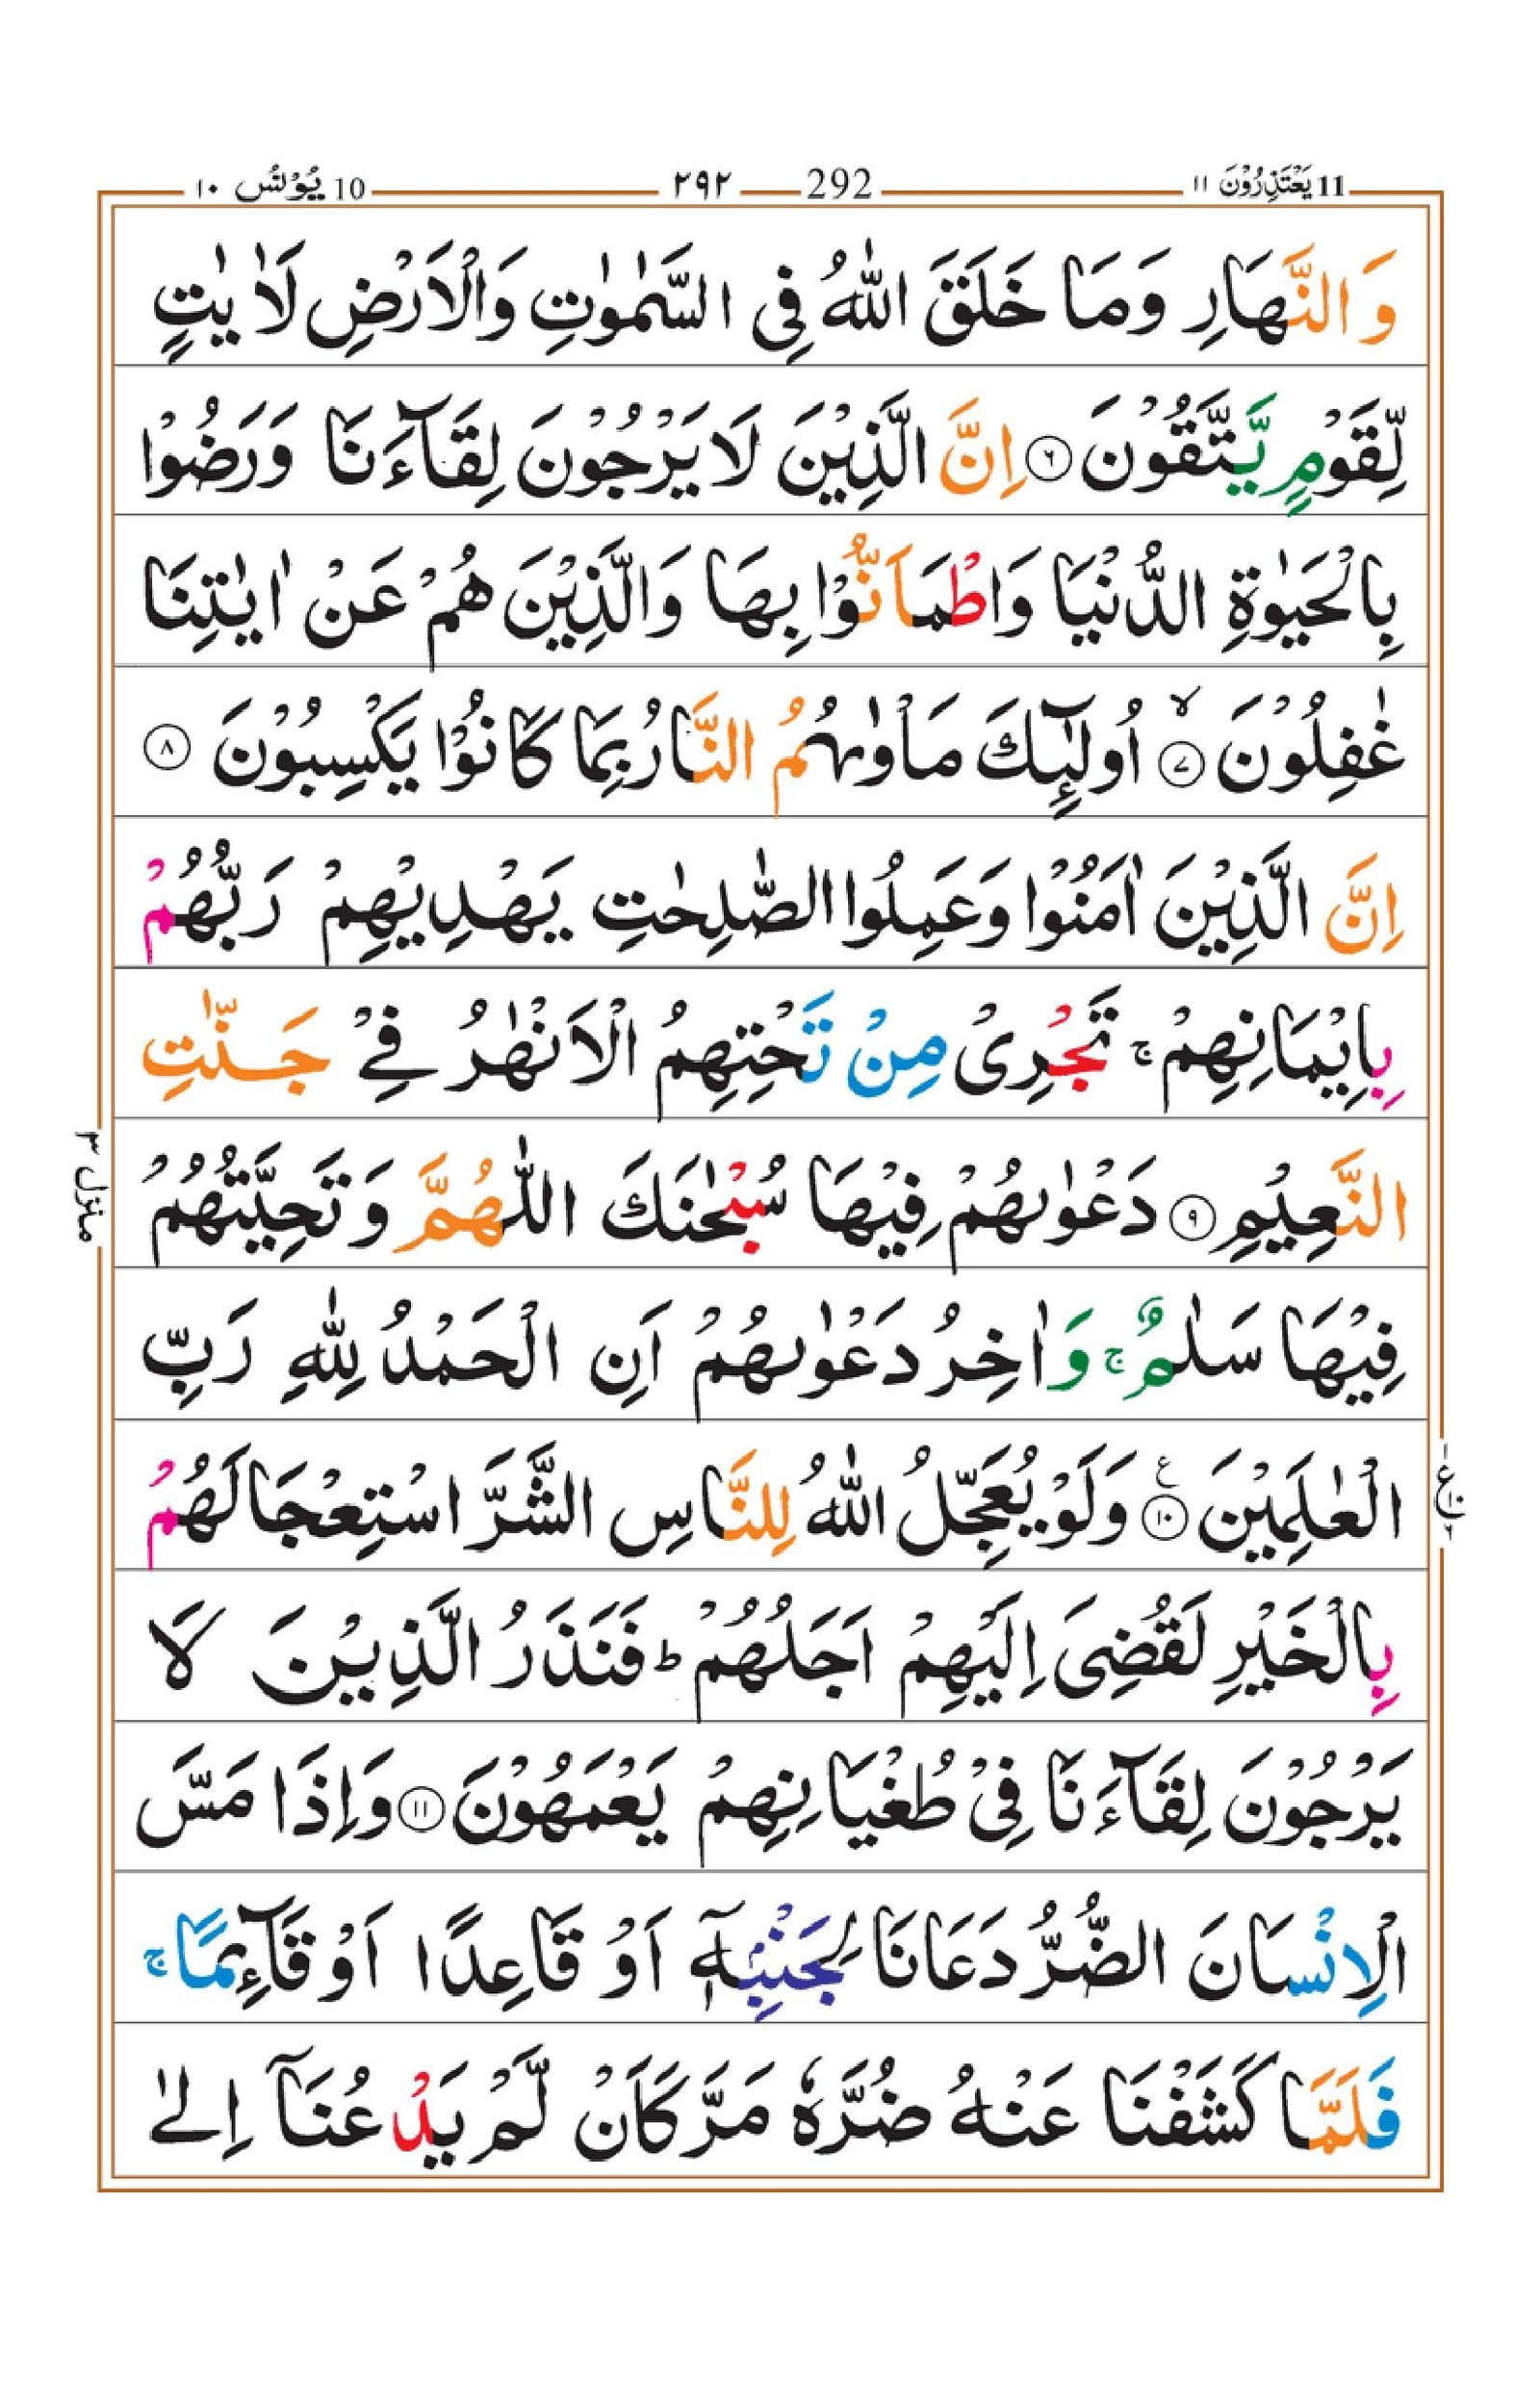 11 یَعْتَذِرُوْنَ ۱۱ 292 ۲۹۲ 10 یُوْنُس ۱۰
وَالنَّهَارِ وَمَا خَلَقَ اللّٰهُ فِی السَّمٰوٰتِ وَالْاَرْضِ لَاٰیٰتٍ
لِّقَوْمٍ یَّتَّقُوْنَ ۶ اِنَّ الَّذِیْنَ لَا یَرْجُوْنَ لِقَآءَنَا وَرَضُوْا
بِالْحَیٰوةِ الدُّنْیَا وَاطْمَاَنُّوْا بِهَا وَالَّذِیْنَ هُمْ عَنْ اٰیٰتِنَا
غٰفِلُوْنَ ۷ۙ اُولٰٓئِكَ مَاْوٰىهُمُ النَّارُ بِمَا كَانُوْا یَكْسِبُوْنَ ۸
اِنَّ الَّذِیْنَ اٰمَنُوْا وَعَمِلُوا الصّٰلِحٰتِ یَهْدِیْهِمْ رَبُّهُمْ
بِاِیْمَانِهِمْ ۚ تَجْرِیْ مِنْ تَحْتِهِمُ الْاَنْهٰرُ فِیْ جَنّٰتِ
النَّعِیْمِ ۹ دَعْوٰىهُمْ فِیْهَا سُبْحٰنَكَ اللّٰهُمَّ وَتَحِیَّتُهُمْ
فِیْهَا سَلٰمٌ ۚ وَاٰخِرُ دَعْوٰىهُمْ اَنِ الْحَمْدُ لِلّٰهِ رَبِّ
الْعٰلَمِیْنَ ۱۰ ع وَلَوْ یُعَجِّلُ اللّٰهُ لِلنَّاسِ الشَّرَّ اسْتِعْجَالَهُمْ
بِالْخَیْرِ لَقُضِیَ اِلَیْهِمْ اَجَلُهُمْ ؕ فَنَذَرُ الَّذِیْنَ لَا
یَرْجُوْنَ لِقَآءَنَا فِیْ طُغْیَانِهِمْ یَعْمَهُوْنَ ۱۱ وَاِذَا مَسَّ
الْاِنْسَانَ الضُّرُّ دَعَانَا لِجَنْۢبِهٖۤ اَوْ قَاعِدًا اَوْ قَآئِمًا ۚ
فَلَمَّا كَشَفْنَا عَنْهُ ضُرَّهٗ مَرَّ كَاَنْ لَّمْ یَدْعُنَاۤ اِلٰی
منزل ۳